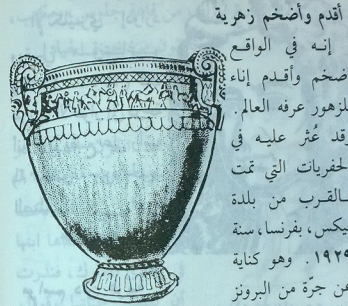 أقدم وأضخم زهرية
إنه في الواقع
ضخم وأقدم إناء
للزهور عرفه العالم.
وقد عُثر عليه في
لحفريات التي تمت
بالقرب من بلدة
يكس، بفرنسا، سنة
١٩٢٩. وهو كناية
عن جرّة من البرونز